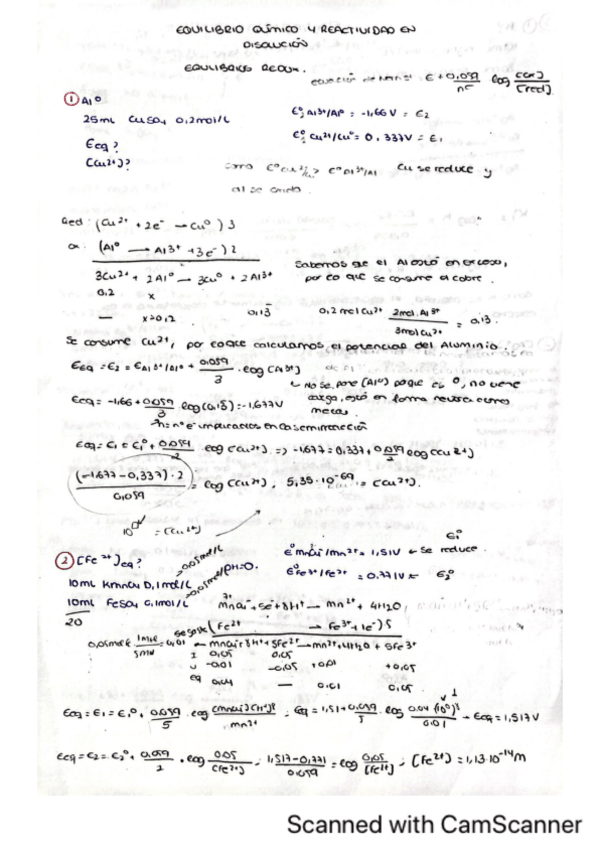 EQUILIBRIO QUÍMICO Y REACTIVIDAD EN
DISOLUCIÓN
EQUILIBRIOS REDOX.
ecuación de Nernst: E + 0,059/n log [ox]/[red]
① Al⁰
25mL CuSO₄ 0,2mol/L
Eeq?
[Cu²⁺]?
E⁰ Al³⁺/Al⁰ = -1,66V = E₂
E⁰ Cu²⁺/Cu⁰ = 0,337V = E₁
como E⁰Cu²⁺/Cu > E⁰Al³⁺/Al Cu se reduce y
Al se oxida.
Red: (Cu²⁺ + 2e⁻ → Cu⁰) 3
ox: (Al⁰ → Al³⁺ + 3e⁻) 2
3Cu²⁺ + 2Al⁰ → 3Cu⁰ + 2Al³⁺
0,2 x
— x>0,2 0,13
Sabemos que el Al está en exceso,
por lo que se consume el cobre.
0,2 mol Cu²⁺ 2mol Al³⁺/3mol Cu²⁺ = 0,13.
Se consume Cu²⁺, por lo que calculamos el potencial del Aluminio.
Eeq = E₂ = E Al³⁺/Al⁰ + 0,059/3 · log [Al³⁺]
↳ No se pone [Al⁰] porque es 0, no tiene
carga, está en forma neutra como
metal.
Eeq = -1,66 + 0,059/3 log (0,13) = -1,677V
n = nº e⁻ implicados en la semirreacción
Eeq = E₁ = E₁⁰ + 0,059/2 log [Cu²⁺] ⇒ -1,677 = 0,337 + 0,059/2 log [Cu²⁺]
(-1,677 - 0,337) · 2/0,059 = log [Cu²⁺] ; 5,35·10⁻⁶⁹ = [Cu²⁺].
10 = [Cu²⁺]
② [Fe²⁺]eq?
10mL KMnO₄ 0,1mol/L 0,05mol/L pH=0.
10mL FeSO₄ 0,1mol/L 0,05mol/L
20
E⁰ MnO₄⁻/Mn²⁺ = 1,51V ← Se reduce. E₁⁰
E⁰ Fe³⁺/Fe²⁺ = 0,771V ← E₂⁰
MnO₄⁻ + 5e⁻ + 8H⁺ → Mn²⁺ + 4H₂O
(Fe²⁺ → Fe³⁺ + 1e⁻) 5
MnO₄⁻ + 8H⁺ + 5Fe²⁺ → Mn²⁺ + 4H₂O + 5Fe³⁺
I 0,05 0,05
-0,01 -0,05 +0,01 +0,05
eq 0,04 — 0,01 0,05
Eeq = E₁ = E₁⁰ + 0,059/5 · log [MnO₄⁻][H⁺]⁸/Mn²⁺ ; Eq = 1,51 + 0,059/5 · log 0,04 (10⁰)⁸/0,01 → Eeq = 1,517V
Eeq = E₂ = E₂⁰ + 0,059/2 · log 0,05/[Fe²⁺] ; 1,517-0,771/0,059 = log 0,05/[Fe²⁺] ; [Fe²⁺] = 1,13·10⁻¹⁴M
Scanned with CamScanner